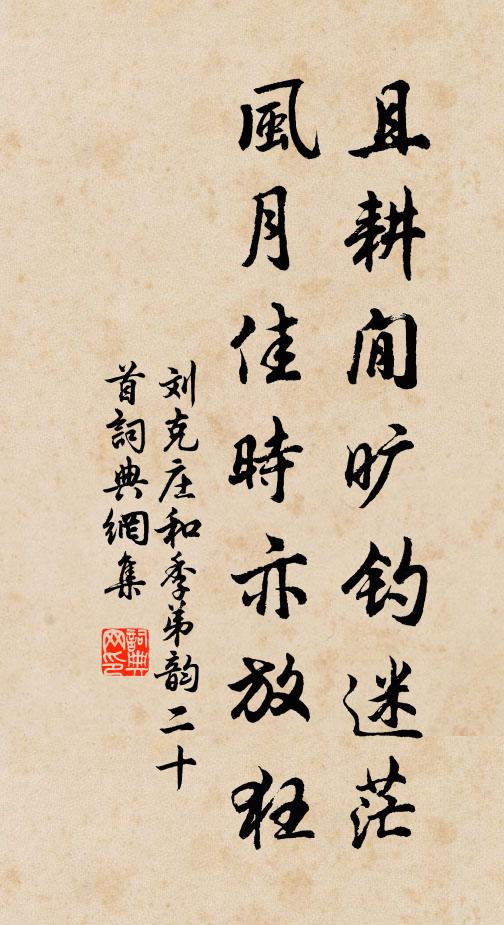 且耕閒旷钓迷茫
風月佳時亦放狂
刘克庄和季弟韵二十
首詞典網集
詞典网印